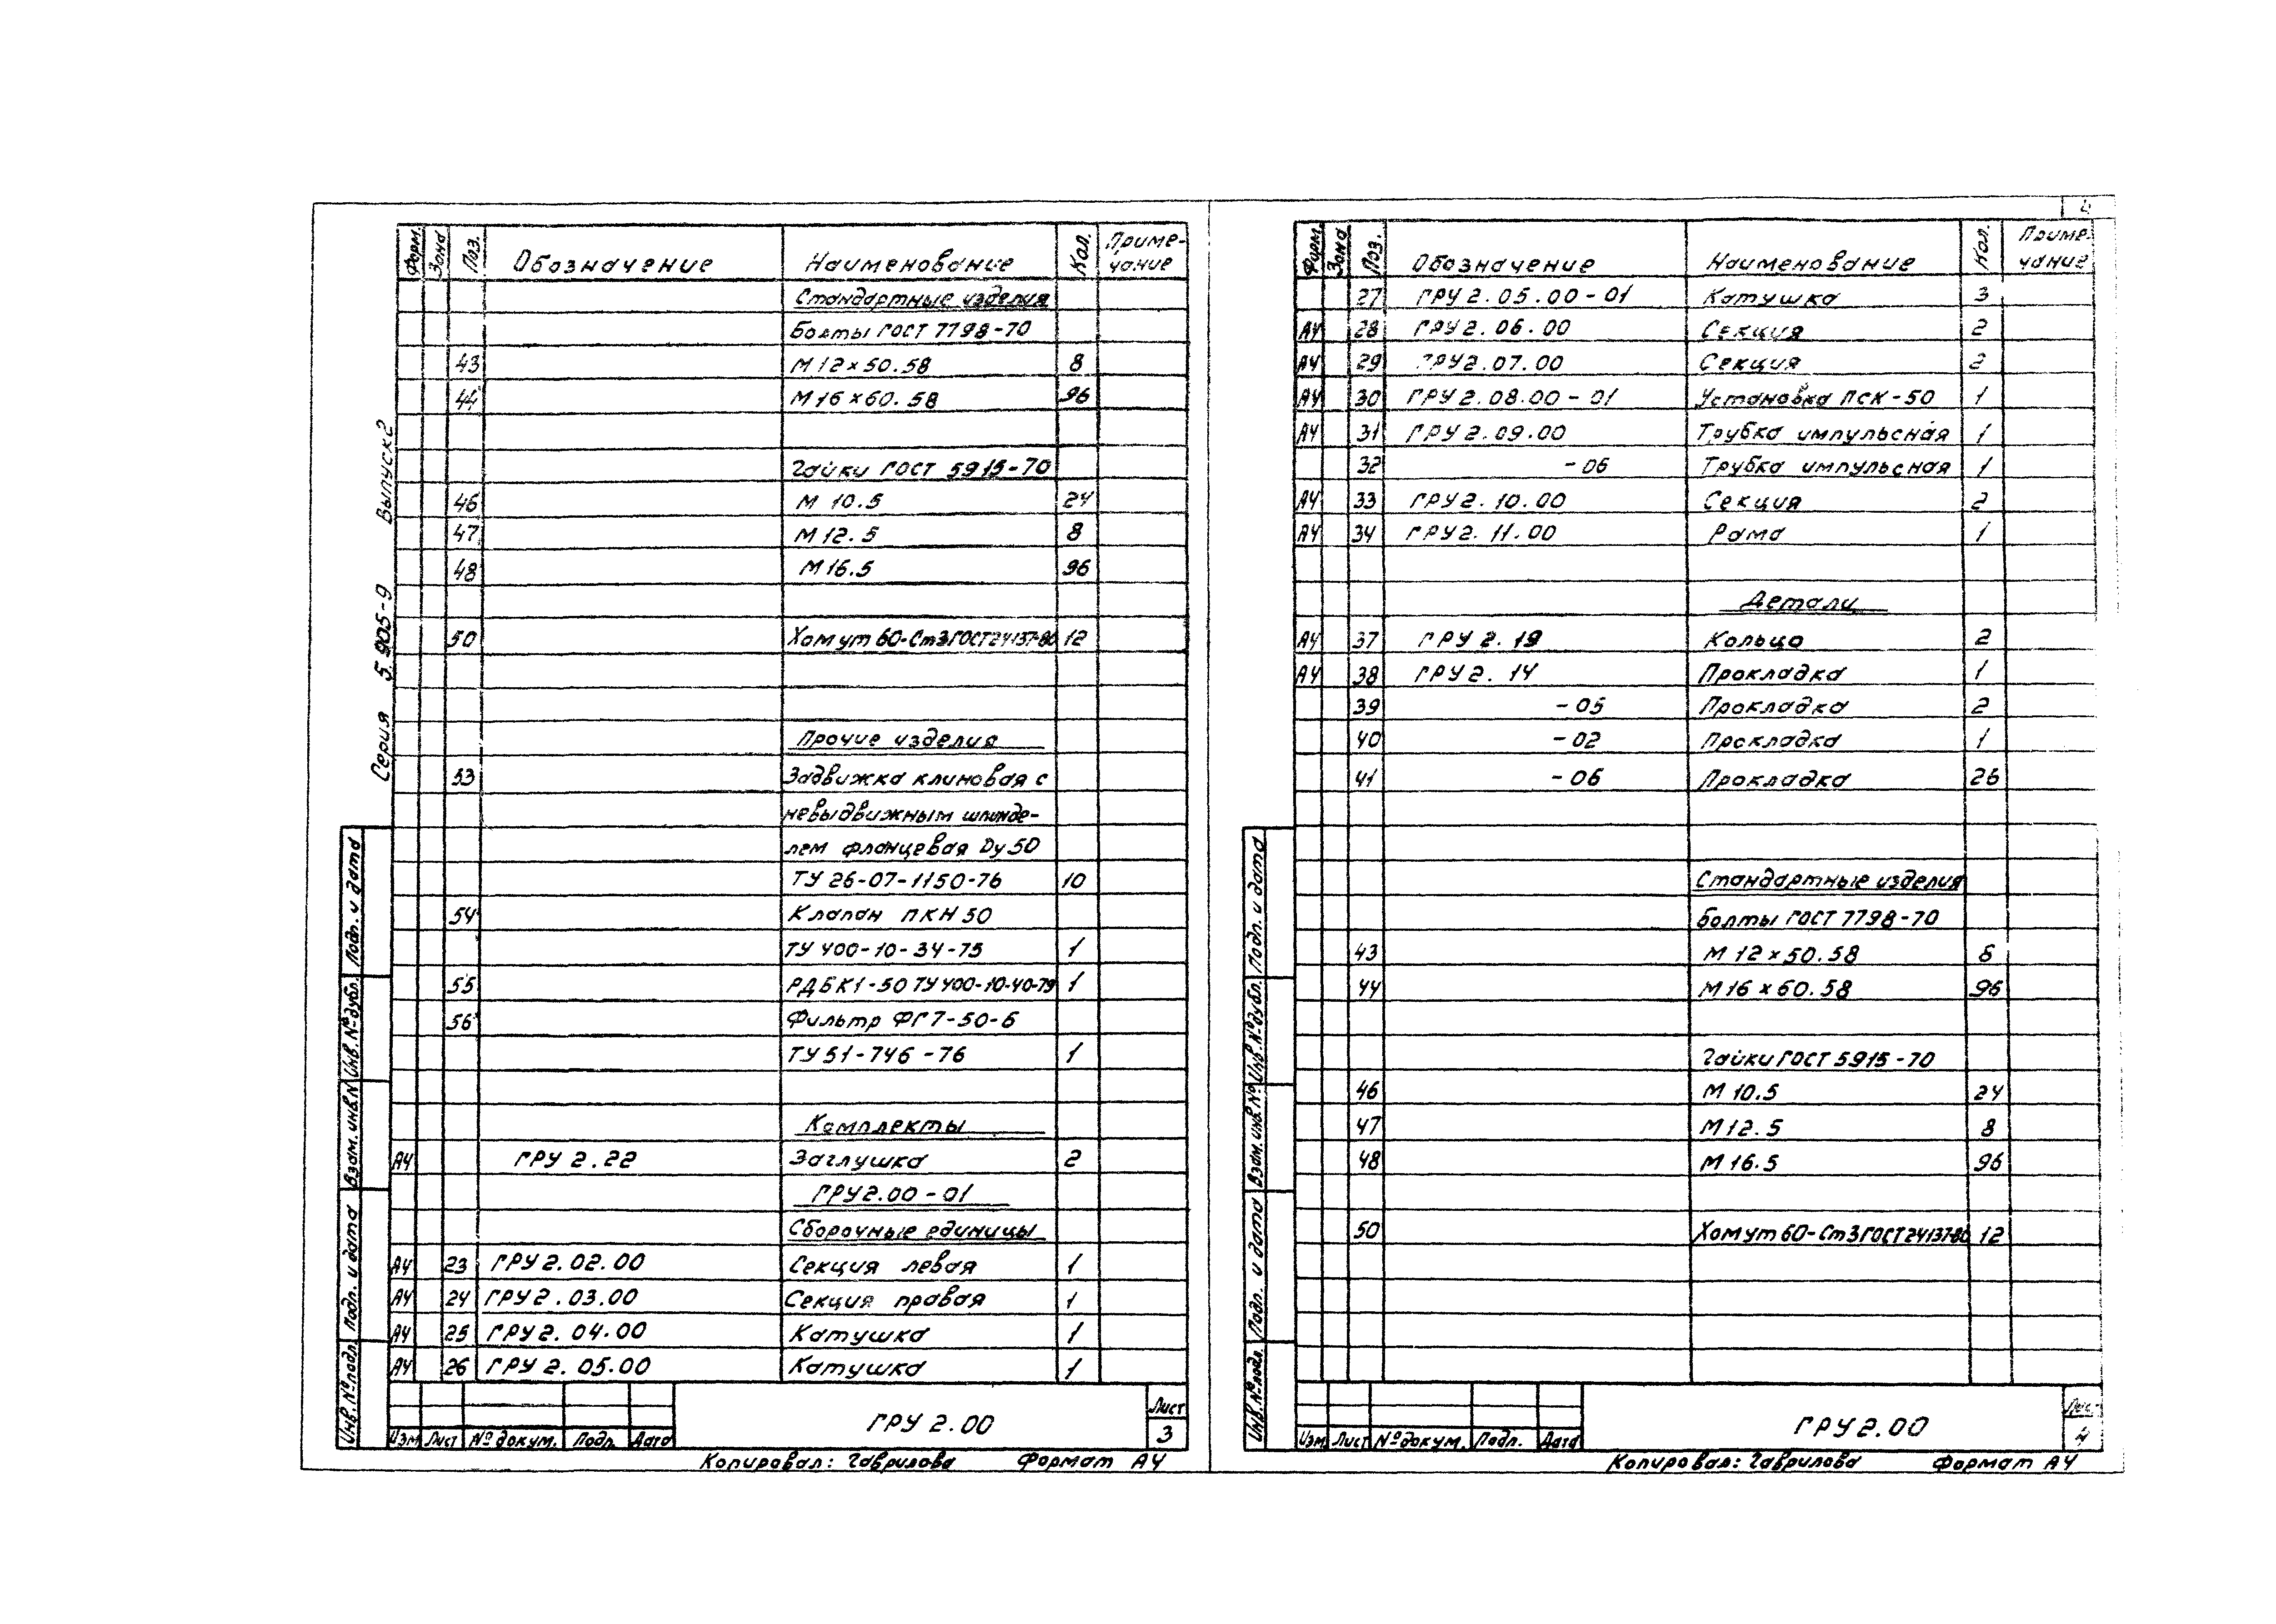 Серия 5.905-9 Выпуск 2
Форм. Зона Поз. Обозначение Наименование Кол. Приме-
чание
Стандартные изделия
Болты ГОСТ 7798-70
43 М12×50.58 8
44 М16×60.58 96
Гайки ГОСТ 5915-70
46 М 10.5 24
47 М12.5 8
48 М16.5 96
50 Хомут 60-Ст3ГОСТ24137-80 12
Прочие изделия
53 Задвижка клиновая с
невыдвижным шпинде-
лем фланцевая Dу50
ТУ 26-07-1150-76 10
54 Клапан ПКН50
ТУ 400-10-34-75 1
55 РДБК1-50 ТУ400-10-40-79 1
56 Фильтр ФГ7-50-6
ТУ51-746-76 1
Комплекты
А4 ГРУ 2.22 Заглушка 2
ГРУ2.00-01
Сборочные единицы
А4 23 ГРУ2.02.00 Секция левая 1
А4 24 ГРУ2.03.00 Секция правая 1
А4 25 ГРУ2.04.00 Катушка 1
А4 26 ГРУ2.05.00 Катушка 1
Инв.№подл. Подп. и дата Взам.инв.№ Инв.№дубл. Подп. и дата
Изм Лист №докум. Подп. Дата
ГРУ 2.00
Лист
3
Копировал: Гаврилова Формат А4
4
Форм. Зона Поз. Обозначение Наименование Кол. Приме-
чание
27 ГРУ2.05.00-01 Катушка 3
А4 28 ГРУ2.06.00 Секция 2
А4 29 ГРУ2.07.00 Секция 2
А4 30 ГРУ2.08.00-01 Установка ПСК-50 1
А4 31 ГРУ2.09.00 Трубка импульсная 1
32 -06 Трубка импульсная 1
А4 33 ГРУ2.10.00 Секция 2
А4 34 ГРУ2.11.00 Рама 1
Детали
А4 37 ГРУ2.19 Кольцо 2
А4 38 ГРУ2.14 Прокладка 1
39 -05 Прокладка 2
40 -02 Прокладка 1
41 -06 Прокладка 26
Стандартные изделия
Болты ГОСТ 7798-70
43 М12×50.58
44 М16×60.58 96
Гайки ГОСТ 5915-70
46 М 10.5 24
47 М12.5 8
48 М16.5 96
50 Хомут60-Ст3ГОСТ24137-80 12
Инв.№подл. Подп. и дата Взам.инв.№ Инв.№дубл. Подп. и дата
Изм Лист №докум. Подп. Дата
ГРУ2.00
Лист
4
Копировал: Гаврилова Формат А4